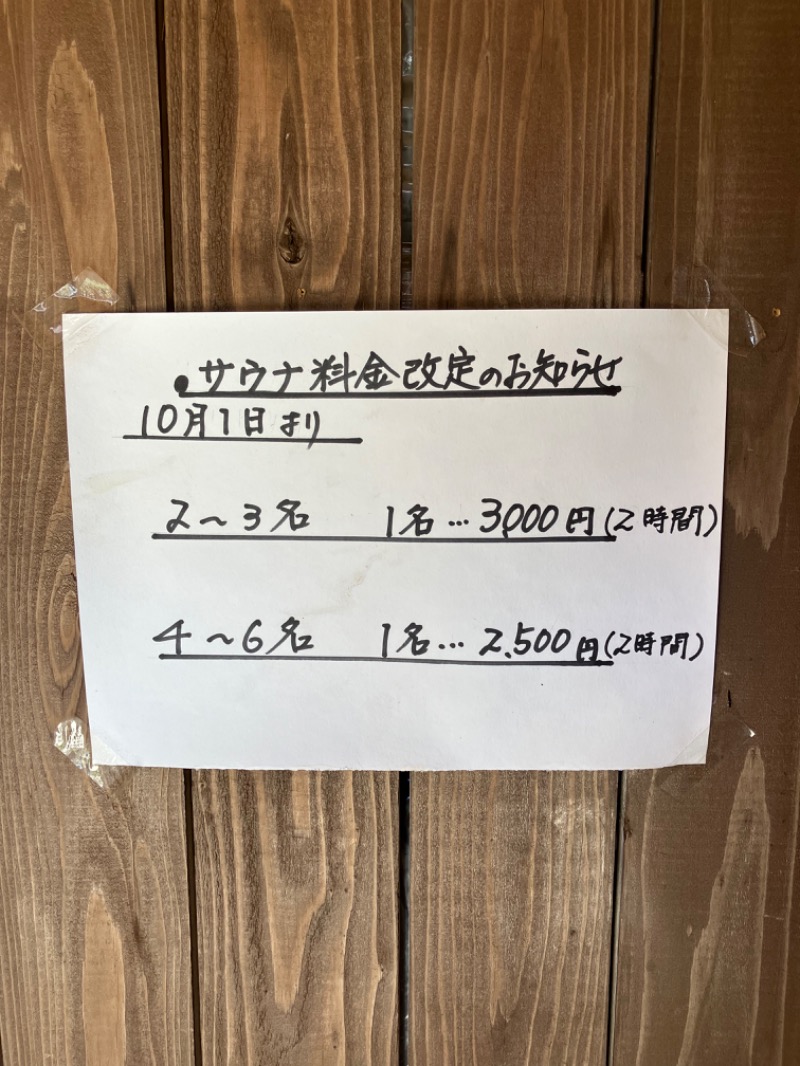 ●サウナ料金改定のお知らせ
10月1日より
2～3名 1名…3,000円(2時間)
4～6名 1名…2,500円(2時間)